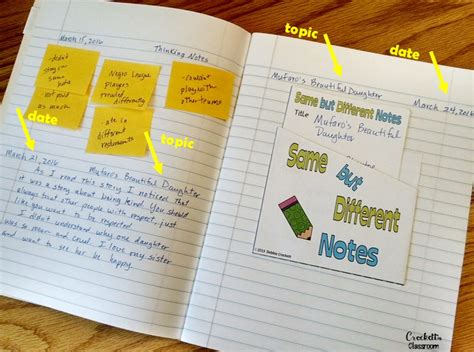 March 15, 2016
Thinking Notes
-didn't
stay in
same
hotel
-not paid
as much
Negro League
players
treated
differently
-couldn't
play with
other teams
-ate in
different
restaurants
date
topic
March 21, 2016 Mufaro's Beautiful Daughter
As I read this story I noticed that
it was a story about being kind. You should
always treat other people with respect, just
like you want to be respected.
I didn't understand why one daughter
was so mean and cruel. I love my sister
and want to see her be happy.
topic
date
Mufaro's Beautiful Daughter
March 24, 2016
Same but Different Notes
Title Mufaro's Beautiful
Daughter
Same
but
Different
Notes
Crockett's
Classroom